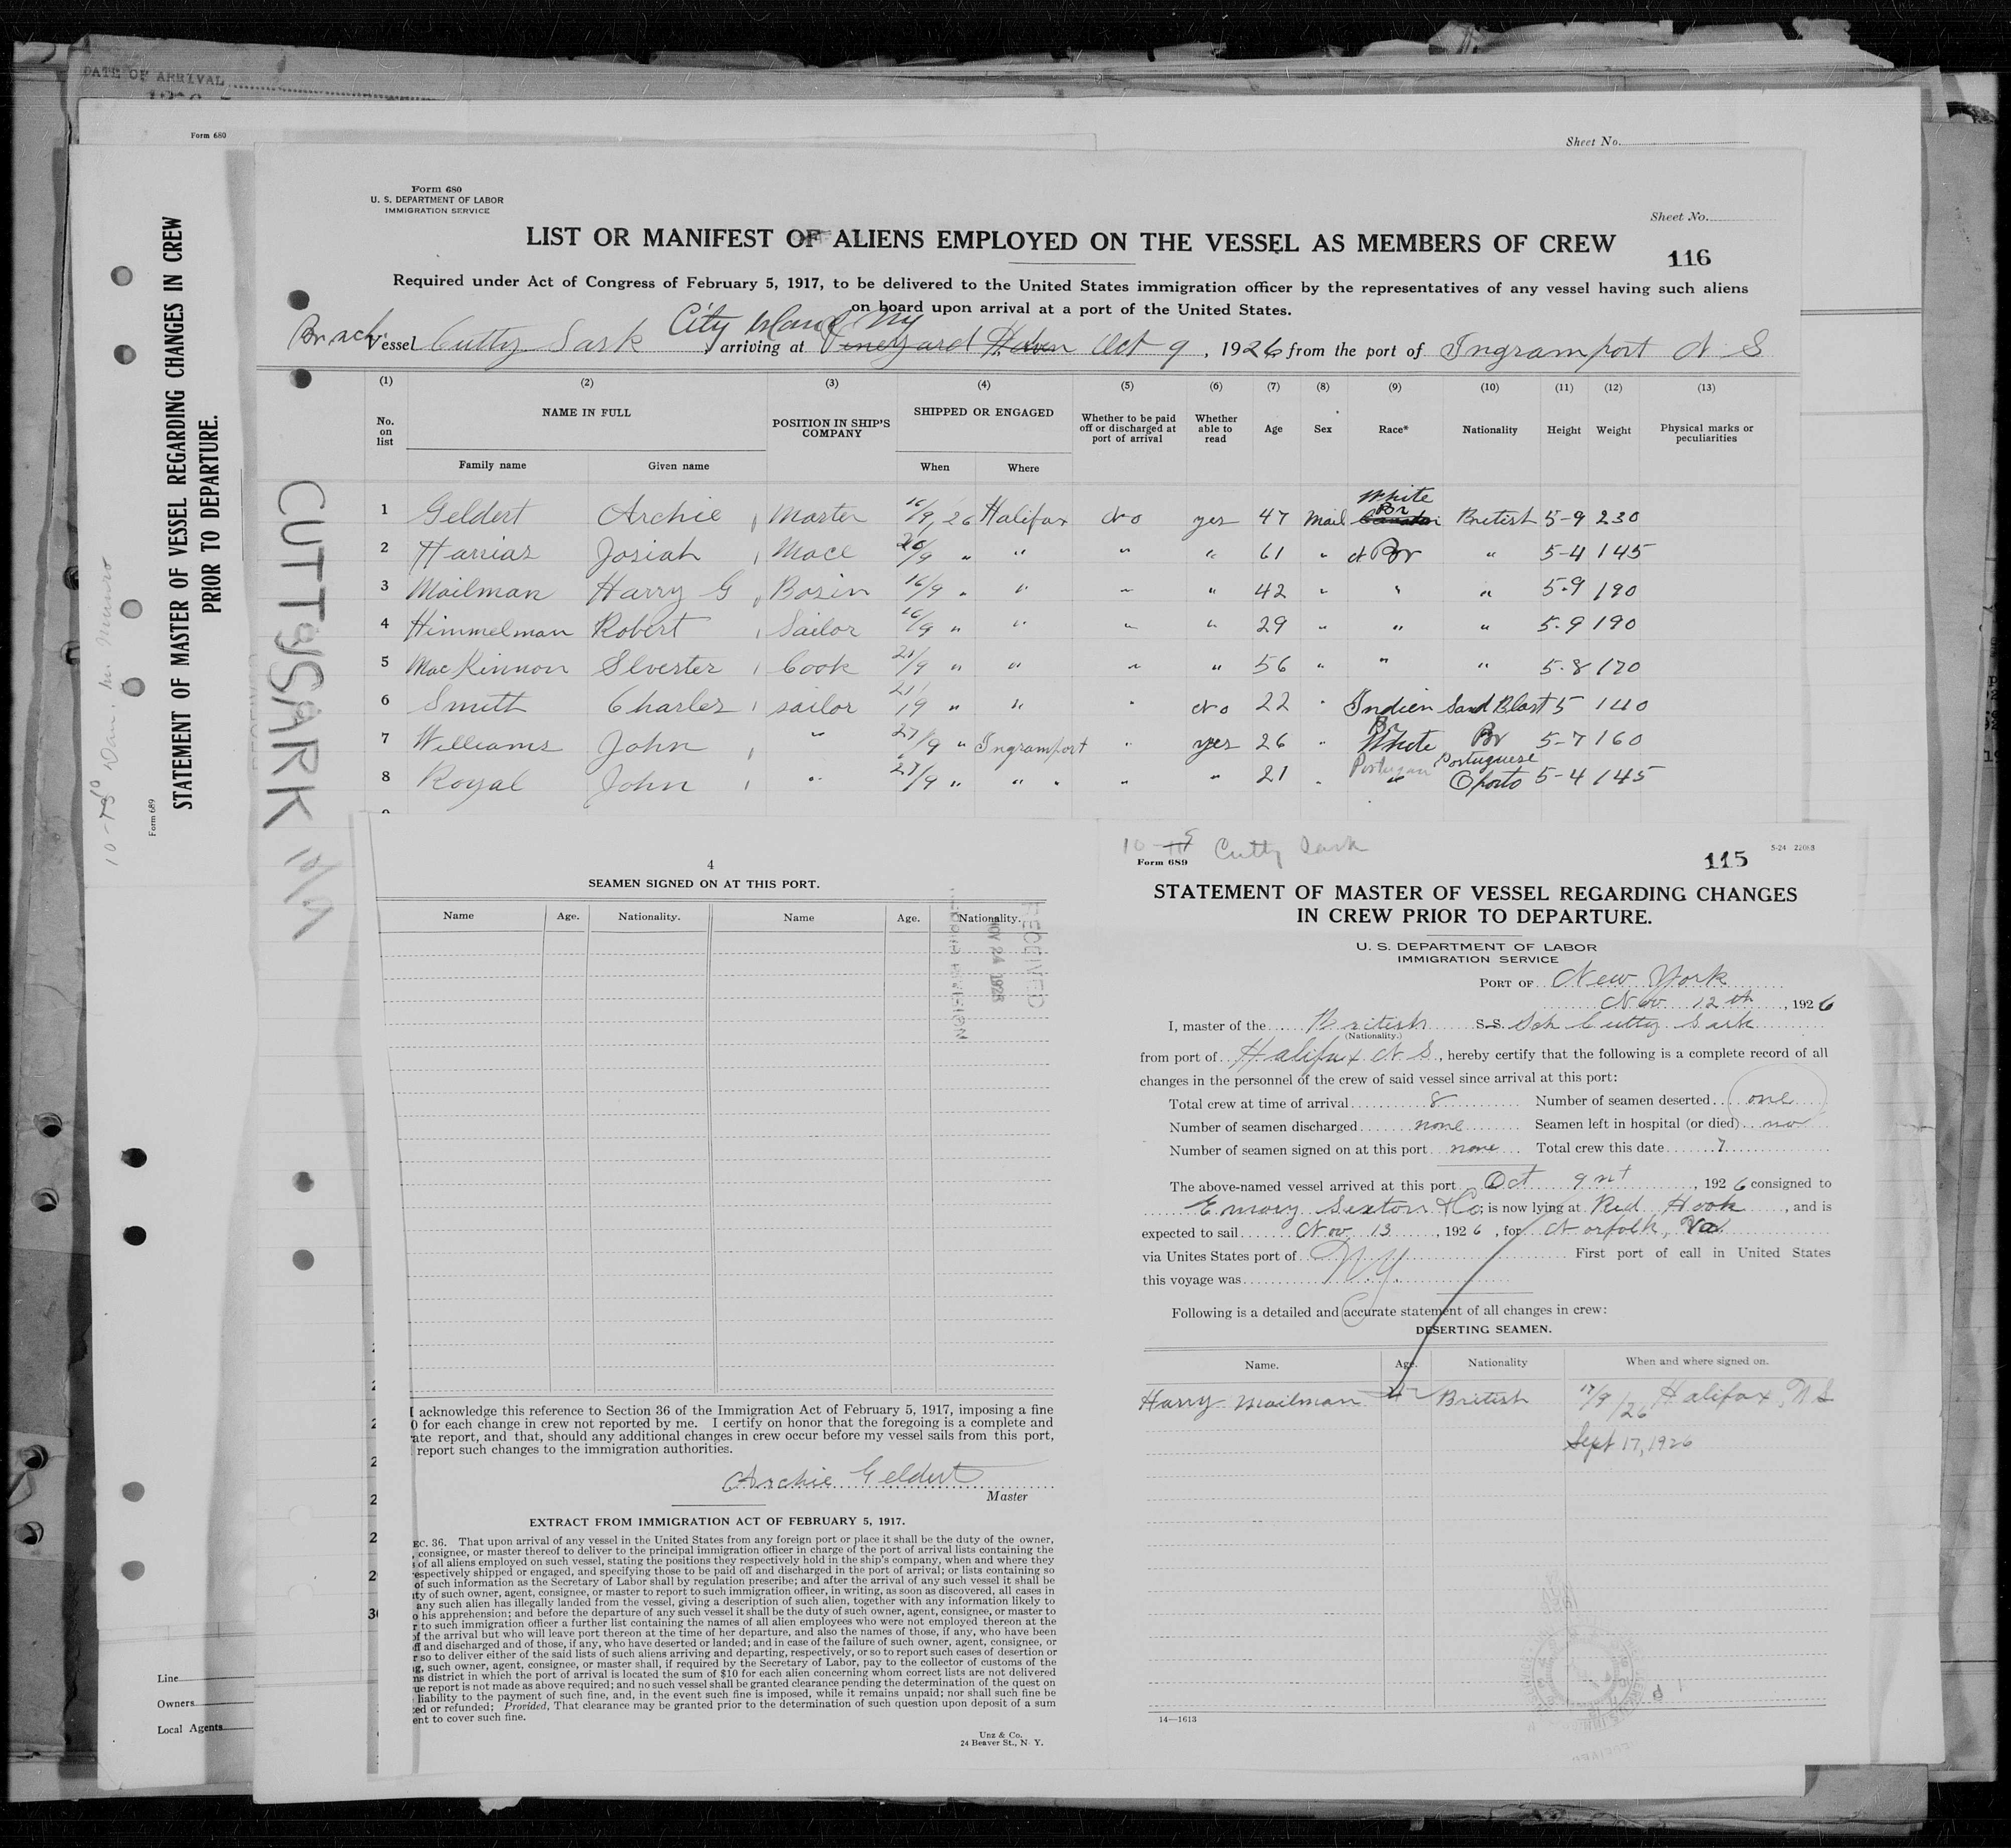 DATE OF ARRIVAL
Form 680
Sheet No.
STATEMENT OF MASTER OF VESSEL REGARDING CHANGES IN CREW
PRIOR TO DEPARTURE.
Form 689
CUTTY SARK
Form 680
U. S. DEPARTMENT OF LABOR
IMMIGRATION SERVICE
Sheet No.
LIST OR MANIFEST OF ALIENS EMPLOYED ON THE VESSEL AS MEMBERS OF CREW
116
Required under Act of Congress of February 5, 1917, to be delivered to the United States immigration officer by the representatives of any vessel having such aliens
on board upon arrival at a port of the United States.
City Island Ny
Br sch Vessel Cutty Sark arriving at Vineyard Haven Oct 9, 1926 from the port of Ingramport N S
(1) (2) (3) (4) (5) (6) (7) (8) (9) (10) (11) (12) (13)
No. on list NAME IN FULL POSITION IN SHIP'S COMPANY SHIPPED OR ENGAGED Whether to be paid off or discharged at port of arrival Whether able to read Age Sex Race* Nationality Height Weight Physical marks or peculiarities
Family name Given name When Where
White
1 Geldert Archie Master 16/9, 26 Halifax No yes 47 Mail Br British 5-9 230
2 Josiah 20/9 " " " " 61 " Br " 5-4 145
3 Mailman Harry G Bosin 16/9 " " " " 42 " " " 5-9 190
4 Himmelman Robert Sailor 16/9 " " " " 29 " " " 5-9 190
5 MacKinnon Slvester Cook 21/9 " " " " 56 " " " 5-8 170
6 Smith Charles sailor 21/9 " " " No 22 " Indien 5 140
Br
7 Williams John " 27/9 " Ingramport " yes 26 " White Br 5-7 160
Portuguese
8 Royal John " 27/9 " " " " 21 " " Oporto 5-4 145
4
SEAMEN SIGNED ON AT THIS PORT.
Name Age. Nationality. Name Age. Nationality.
RECEIVED
NOV 24 1926
I acknowledge this reference to Section 36 of the Immigration Act of February 5, 1917, imposing a fine
0 for each change in crew not reported by me. I certify on honor that the foregoing is a complete and
ate report, and that, should any additional changes in crew occur before my vessel sails from this port,
report such changes to the immigration authorities.
Archie Geldert
Master
EXTRACT FROM IMMIGRATION ACT OF FEBRUARY 5, 1917.
EC. 36. That upon arrival of any vessel in the United States from any foreign port or place it shall be the duty of the owner,
, consignee, or master thereof to deliver to the principal immigration officer in charge of the port of arrival lists containing the
s of all aliens employed on such vessel, stating the positions they respectively hold in the ship's company, when and where they
espectively shipped or engaged, and specifying those to be paid off and discharged in the port of arrival; or lists containing so
of such information as the Secretary of Labor shall by regulation prescribe; and after the arrival of any such vessel it shall be
ty of such owner, agent, consignee, or master to report to such immigration officer, in writing, as soon as discovered, all cases in
any such alien has illegally landed from the vessel, giving a description of such alien, together with any information likely to
o his apprehension; and before the departure of any such vessel it shall be the duty of such owner, agent, consignee, or master to
r to such immigration officer a further list containing the names of all alien employees who were not employed thereon at the
of the arrival but who will leave port thereon at the time of her departure, and also the names of those, if any, who have been
ff and discharged and of those, if any, who have deserted or landed; and in case of the failure of such owner, agent, consignee, or
r so to deliver either of the said lists of such aliens arriving and departing, respectively, or so to report such cases of desertion or
g, such owner, agent, consignee, or master shall, if required by the Secretary of Labor, pay to the collector of customs of the
ms district in which the port of arrival is located the sum of $10 for each alien concerning whom correct lists are not delivered
ue report is not made as above required; and no such vessel shall be granted clearance pending the determination of the quest on
liability to the payment of such fine, and, in the event such fine is imposed, while it remains unpaid; nor shall such fine be
ed or refunded; Provided, That clearance may be granted prior to the determination of such question upon deposit of a sum
ent to cover such fine.
Unz & Co.
24 Beaver St., N. Y.
Cutty Sark
Form 689
115
5-24 22083
STATEMENT OF MASTER OF VESSEL REGARDING CHANGES
IN CREW PRIOR TO DEPARTURE.
U. S. DEPARTMENT OF LABOR
IMMIGRATION SERVICE
PORT OF New York
Nov 12th, 1926
I, master of the British S.S. Sch Cutty Sark
(Nationality.)
from port of Halifax N. S., hereby certify that the following is a complete record of all
changes in the personnel of the crew of said vessel since arrival at this port:
Total crew at time of arrival 8 Number of seamen deserted one
Number of seamen discharged none Seamen left in hospital (or died) no
Number of seamen signed on at this port none Total crew this date 7
The above-named vessel arrived at this port Oct 9nt, 1926 consigned to
Emory Sexton & Co; is now lying at Red Hook, and is
expected to sail Nov 13, 1926, for Norfolk, Va.
via Unites States port of N.Y. First port of call in United States
this voyage was
Following is a detailed and accurate statement of all changes in crew:
DESERTING SEAMEN.
Name. Age. Nationality When and where signed on.
Harry Mailman 42 British 17/9/26 Halifax, N S
Sept 17, 1926
14—1613
Line
Owners
Local Agents